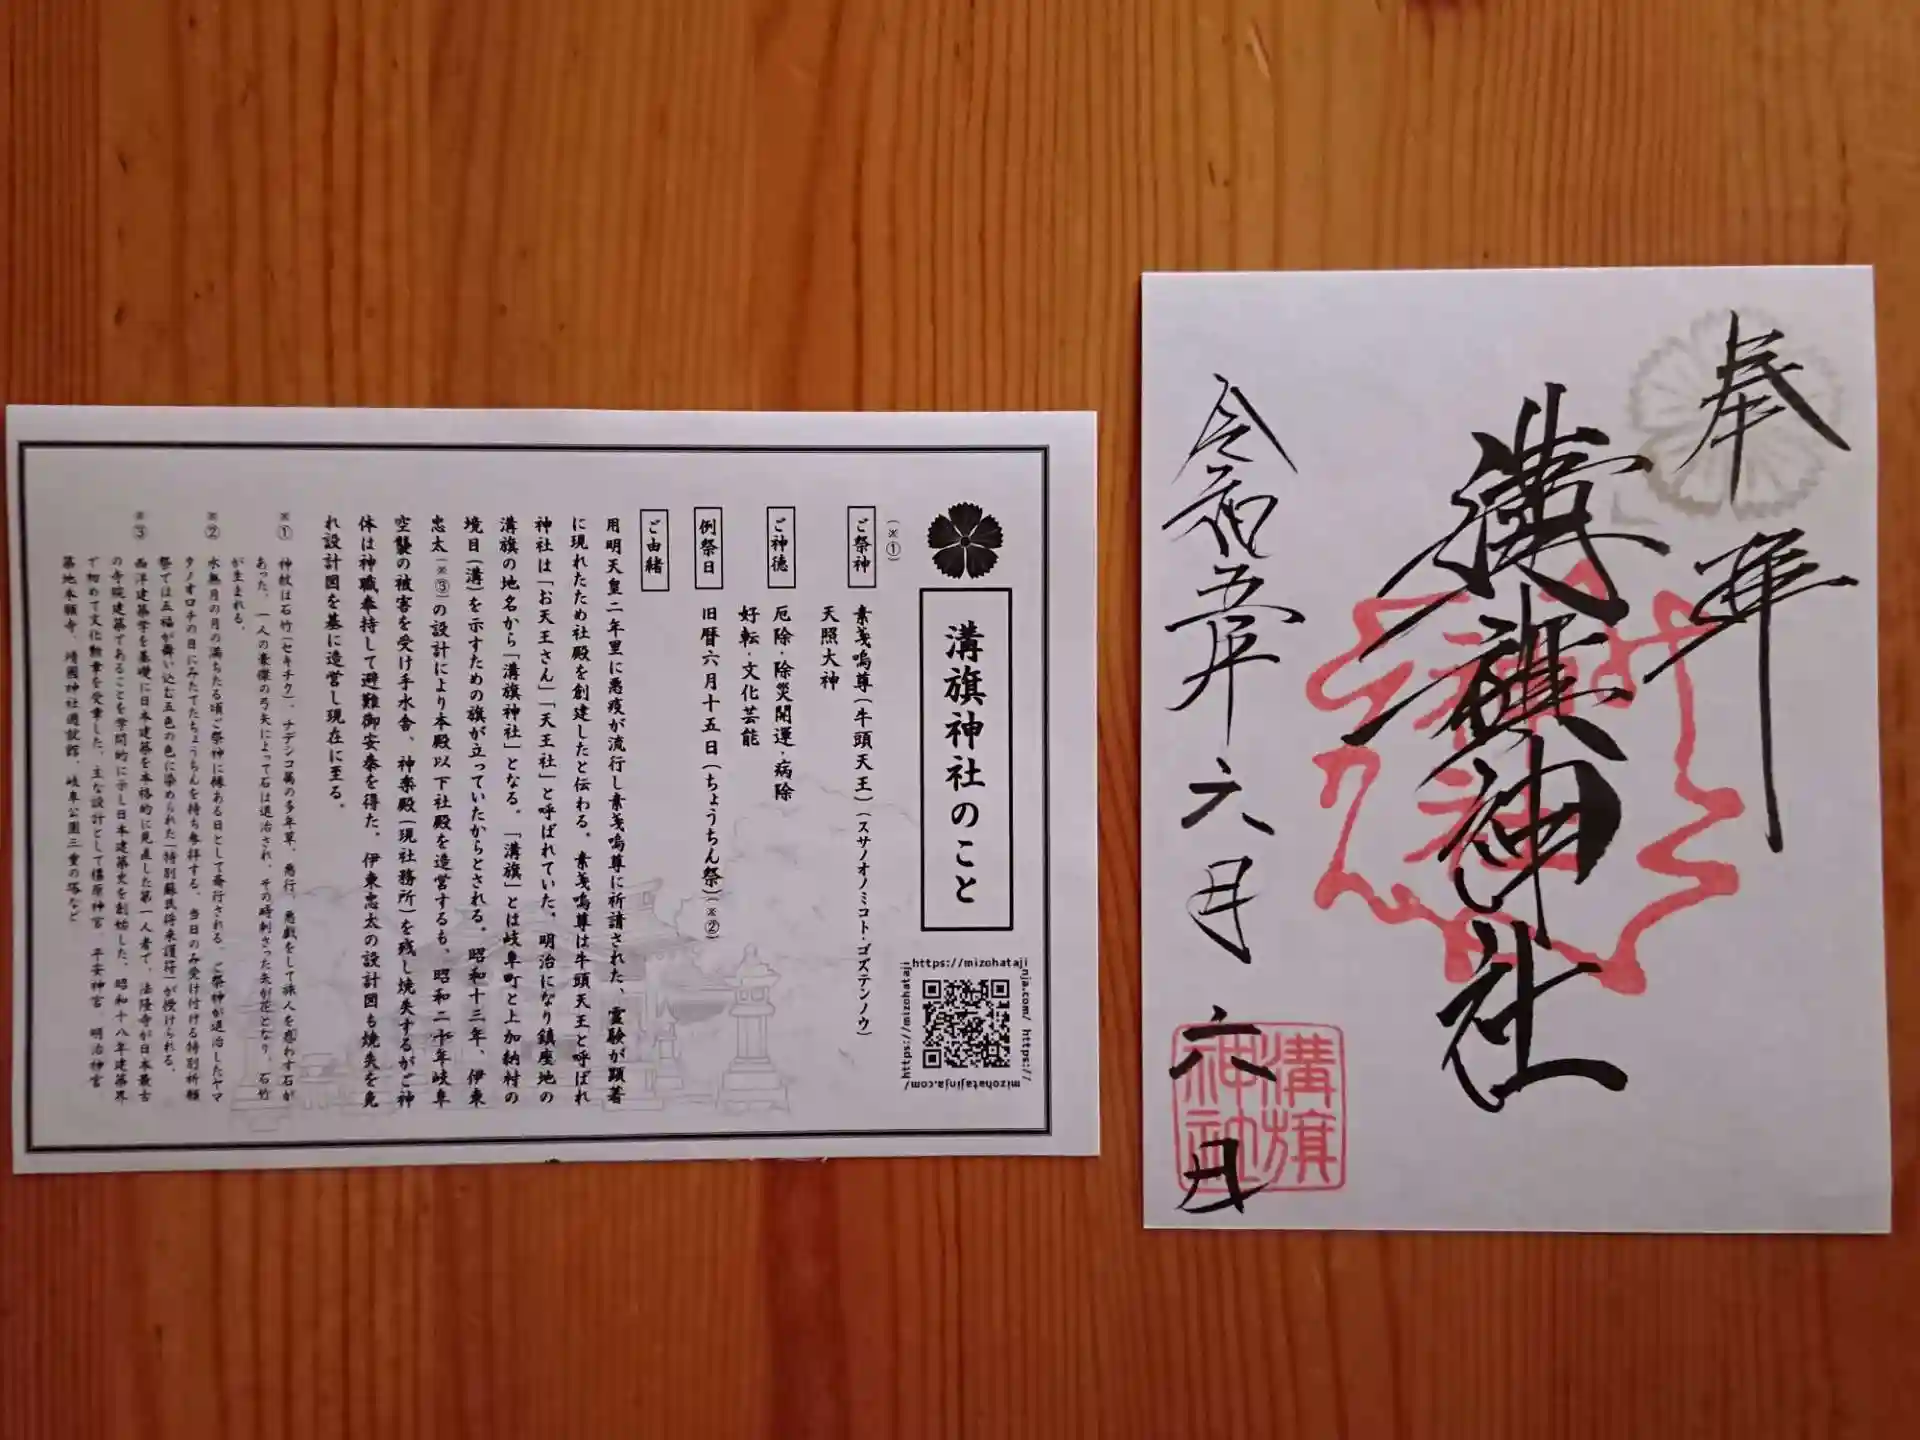 奉拝
溝旗神社
令和五年六月六日
溝旗
神社
溝旗神社のこと
https://mizohatajinja.com/ https://mizohatajinja.com/ https://mizohatajinja.com/
(※①)
ご祭神
素戔嗚尊(牛頭天王)(スサノオノミコト・ゴズテンノウ)
天照大神
ご神徳
厄除・除災開運・病除
好転・文化芸能
例祭日
旧暦六月十五日(ちょうちん祭)(※②)
ご由緒
用明天皇二年里に悪疫が流行し素戔嗚尊に祈請された、霊験が顕著
に現れたため社殿を創建したと伝わる。素戔嗚尊は牛頭天王と呼ばれ
神社は「お天王さん」「天王社」と呼ばれていた。明治になり鎮座地の
溝旗の地名から「溝旗神社」となる。「溝旗」とは岐阜町と上加納村の
境目(溝)を示すための旗が立っていたからとされる。昭和十三年、伊東
忠太(※③)の設計により本殿以下社殿を造営するも、昭和二十年岐阜
空襲の被害を受け手水舎、神楽殿(現社務所)を残し焼失するがご神
体は神職奉持して避難御安泰を得た。伊東忠太の設計図も焼失を免
れ設計図を基に造営し現在に至る。
※① 神紋は石竹(セキチク)、ナデシコ属の多年草。悪行、悪戯をして旅人を惑わす石が
あった。一人の豪傑の弓矢によって石は退治され、その時刺さった矢が花となり、石竹
が生まれる。
※② 水無月の月の満ちたる頃ご祭神に縁ある日として斎行される。ご祭神が退治したヤマ
タノオロチの目にみたてたちょうちんを持ち参拝する。当日のみ受け付ける特別祈願
祭では五福が舞い込む五色の色に染められた「特別蘇民将来護符」が授けられる。
※③ 西洋建築学を基礎に日本建築を本格的に見直した第一人者で、法隆寺が日本最古
の寺院建築であることを学問的に示し日本建築史を創始した。昭和十八年建築界
で初めて文化勲章を受章した。主な設計として橿原神宮、平安神宮、明治神宮
築地本願寺、靖國神社遊就館、岐阜公園三重の塔など